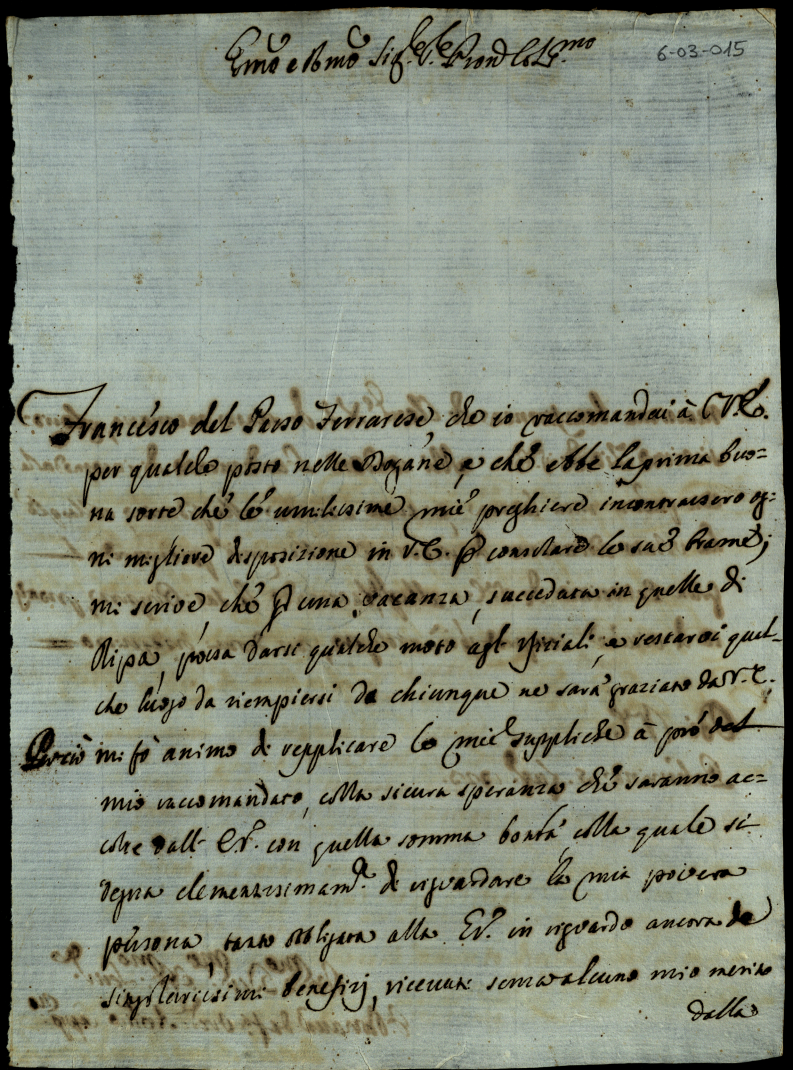 Emo e Rmo Sigre
6-03-015
Francesco del Passo Ferrarese, che io raccomandai à V.E.
per qualche posto nelle Dogane, e che ebbe la prima buo=
na sorte che le umilissime mie preghiere incontrassero og=
ni migliore disposizione in V.E. p consolare le sue brame;
mi scrive, che p una vacanza, succeduta in quelle di
Ripa, possa darsi qualche moto agl'Officiali, e restarvi qual=
che luogo da riempiersi da chiunque ne sarà graziato da V.E.
Perciò mi fò animo di repplicare le mie suppliche à prò del
mio raccomandato, colla sicura speranza che saranno ac=
colte dall' E.V. con quella somma bontà, colla quale si
degna clementissimamte di riguardare la mia povera
persona tanto obbligata alla E.V. in riguardo ancora de
singolarissimi benefizj, ricevuti senza alcuno mio merito
dalla